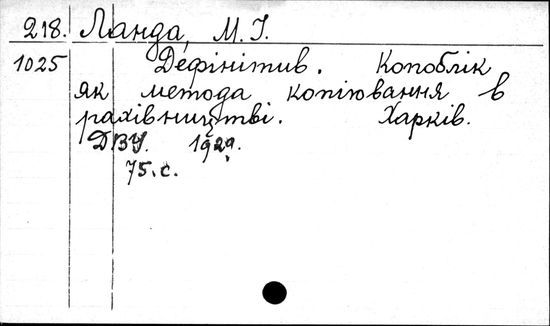 218. Ланда, М. І.
1025 Дефінітив. Копоблік
як метода копіювання в
рахівництві. Харків.
ДВУ. 1929.
75. с.